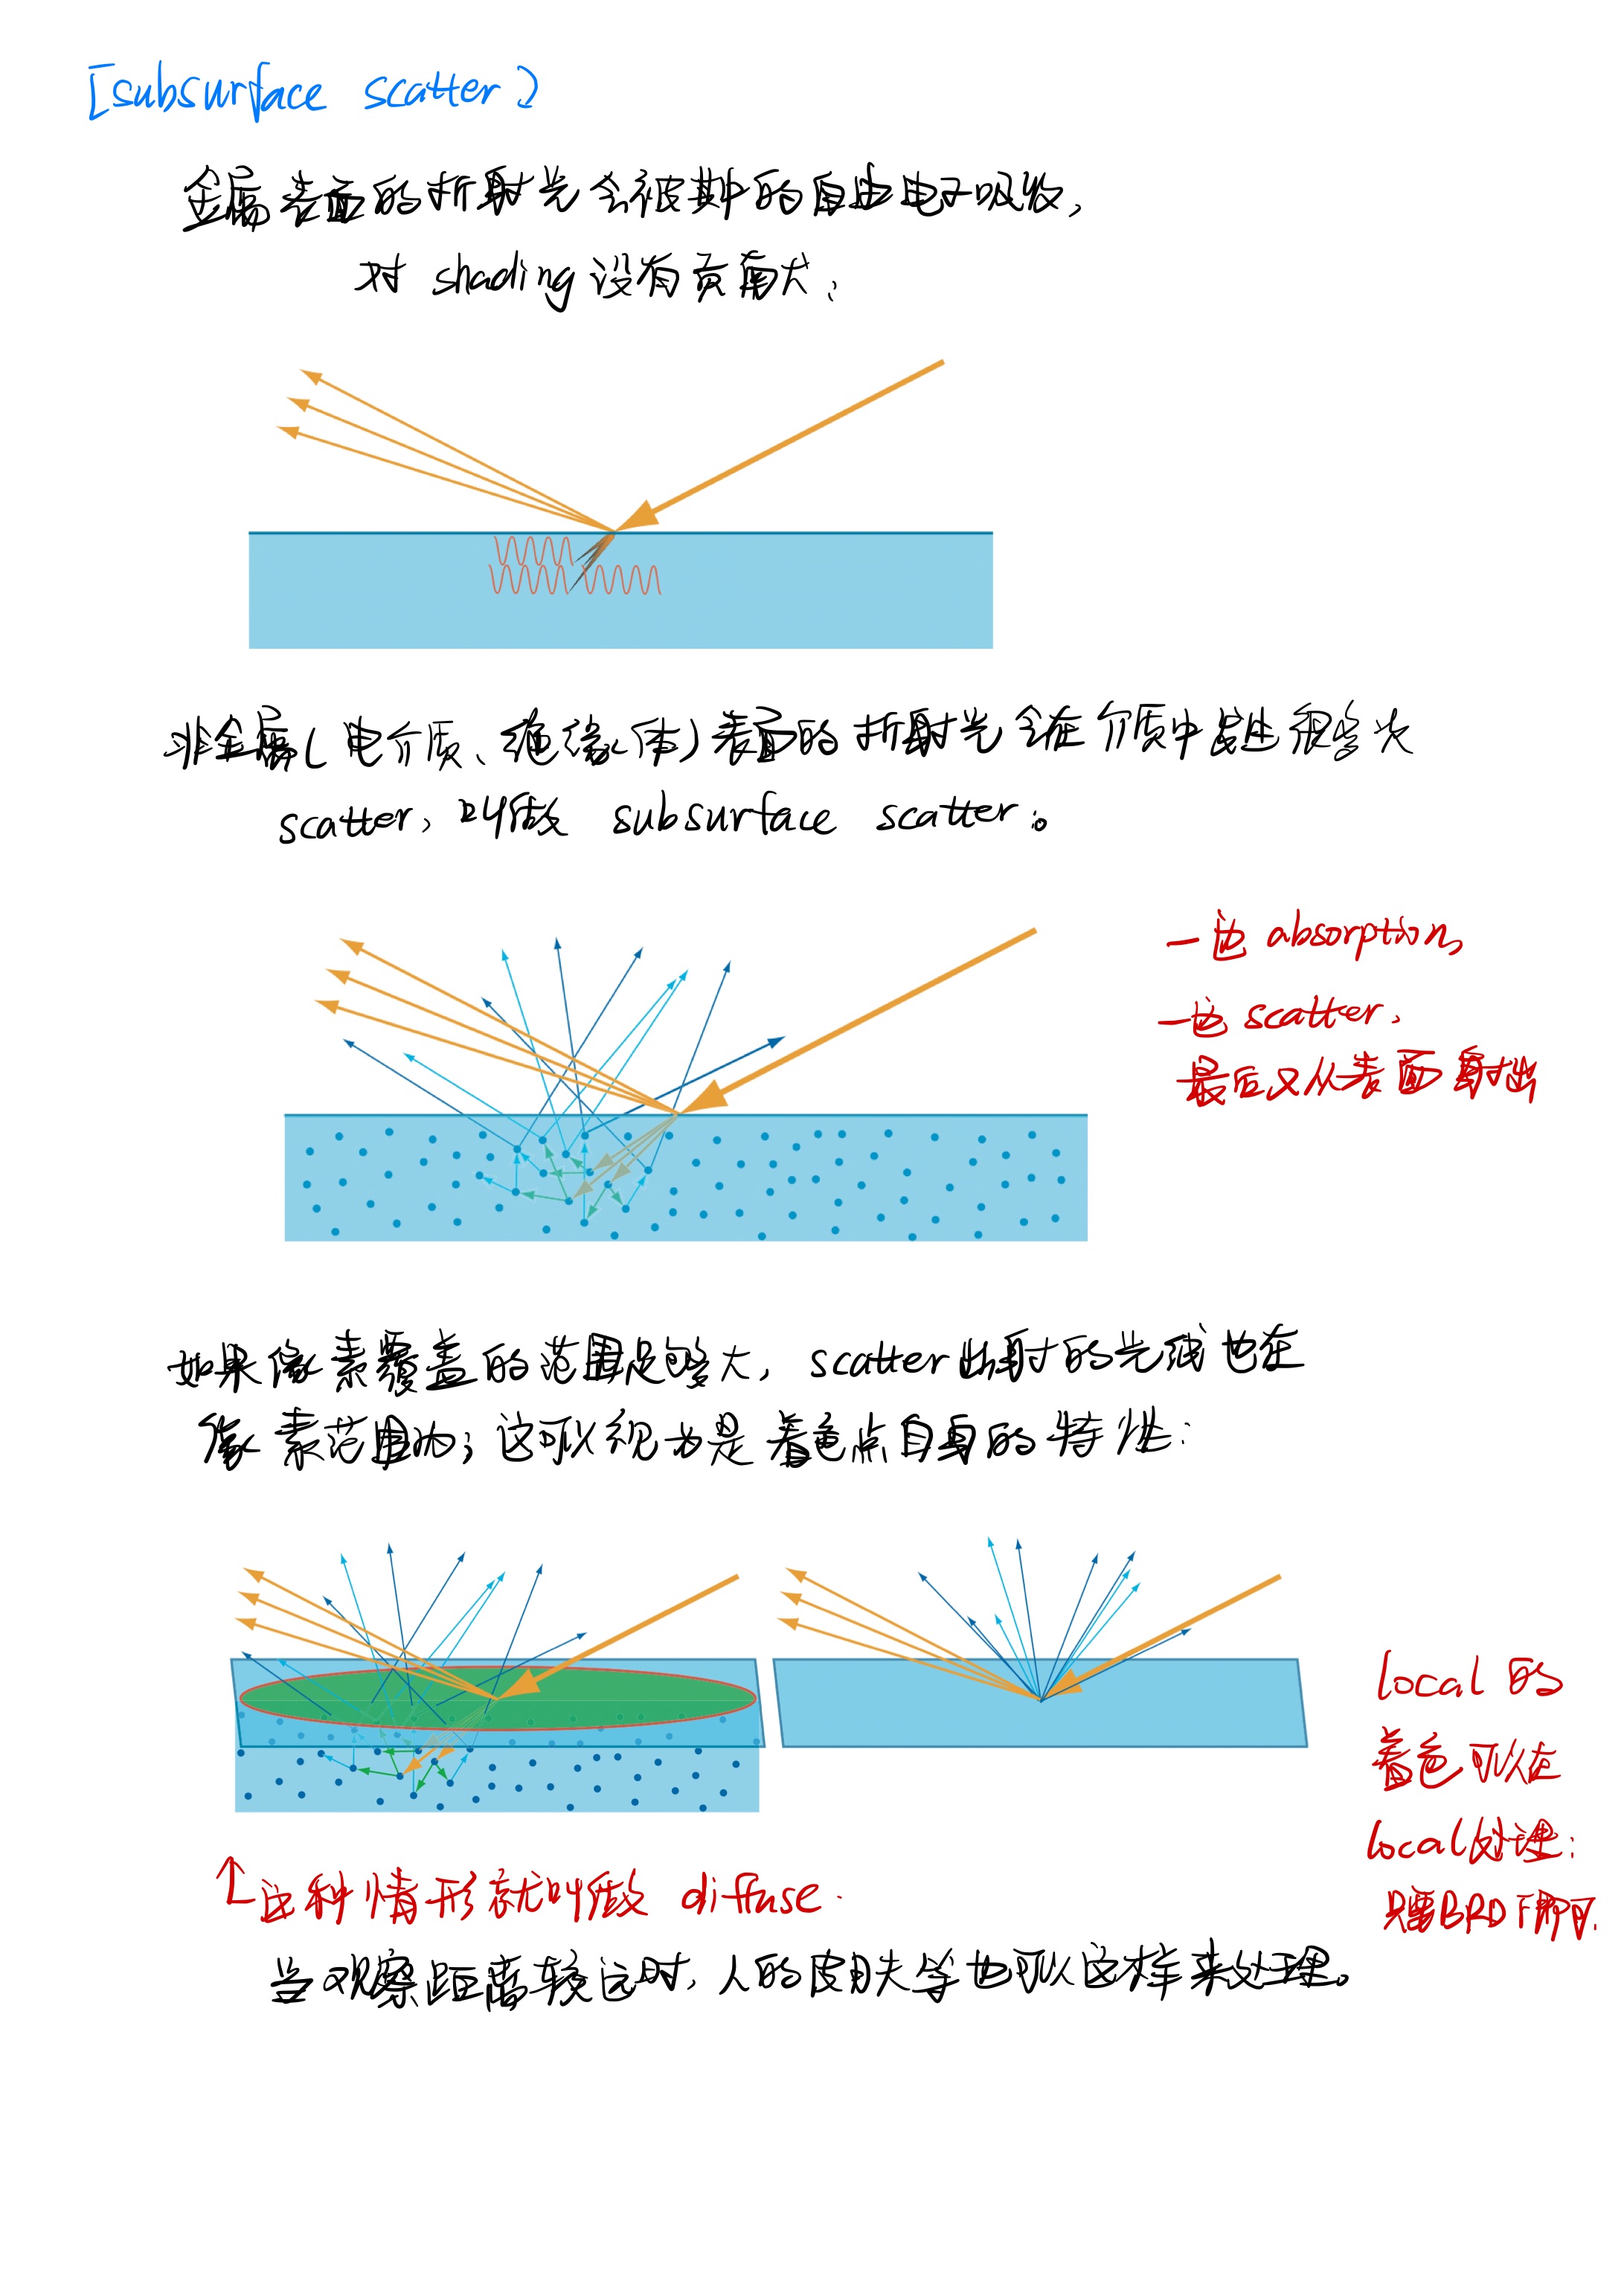 [subsurface scatter]
金属表面的折射光会被其中的自由电子吸收,
对 shading 没有贡献;
非金属(电介质、绝缘体)表面的折射光会在介质中发生很多次
scatter, 叫做 subsurface scatter。
一边 absorption,
一边 scatter,
最后又从表面射出
如果像素覆盖的范围足够大, scatter出射的光线也在
像素范围内; 这可以视为是着色点自身的特性:
local 的
着色可以在
local处理:
只需BRDF即可.
↑这种情形就叫做 diffuse.
当观察距离较远时, 人的皮肤等也可以这样来处理。